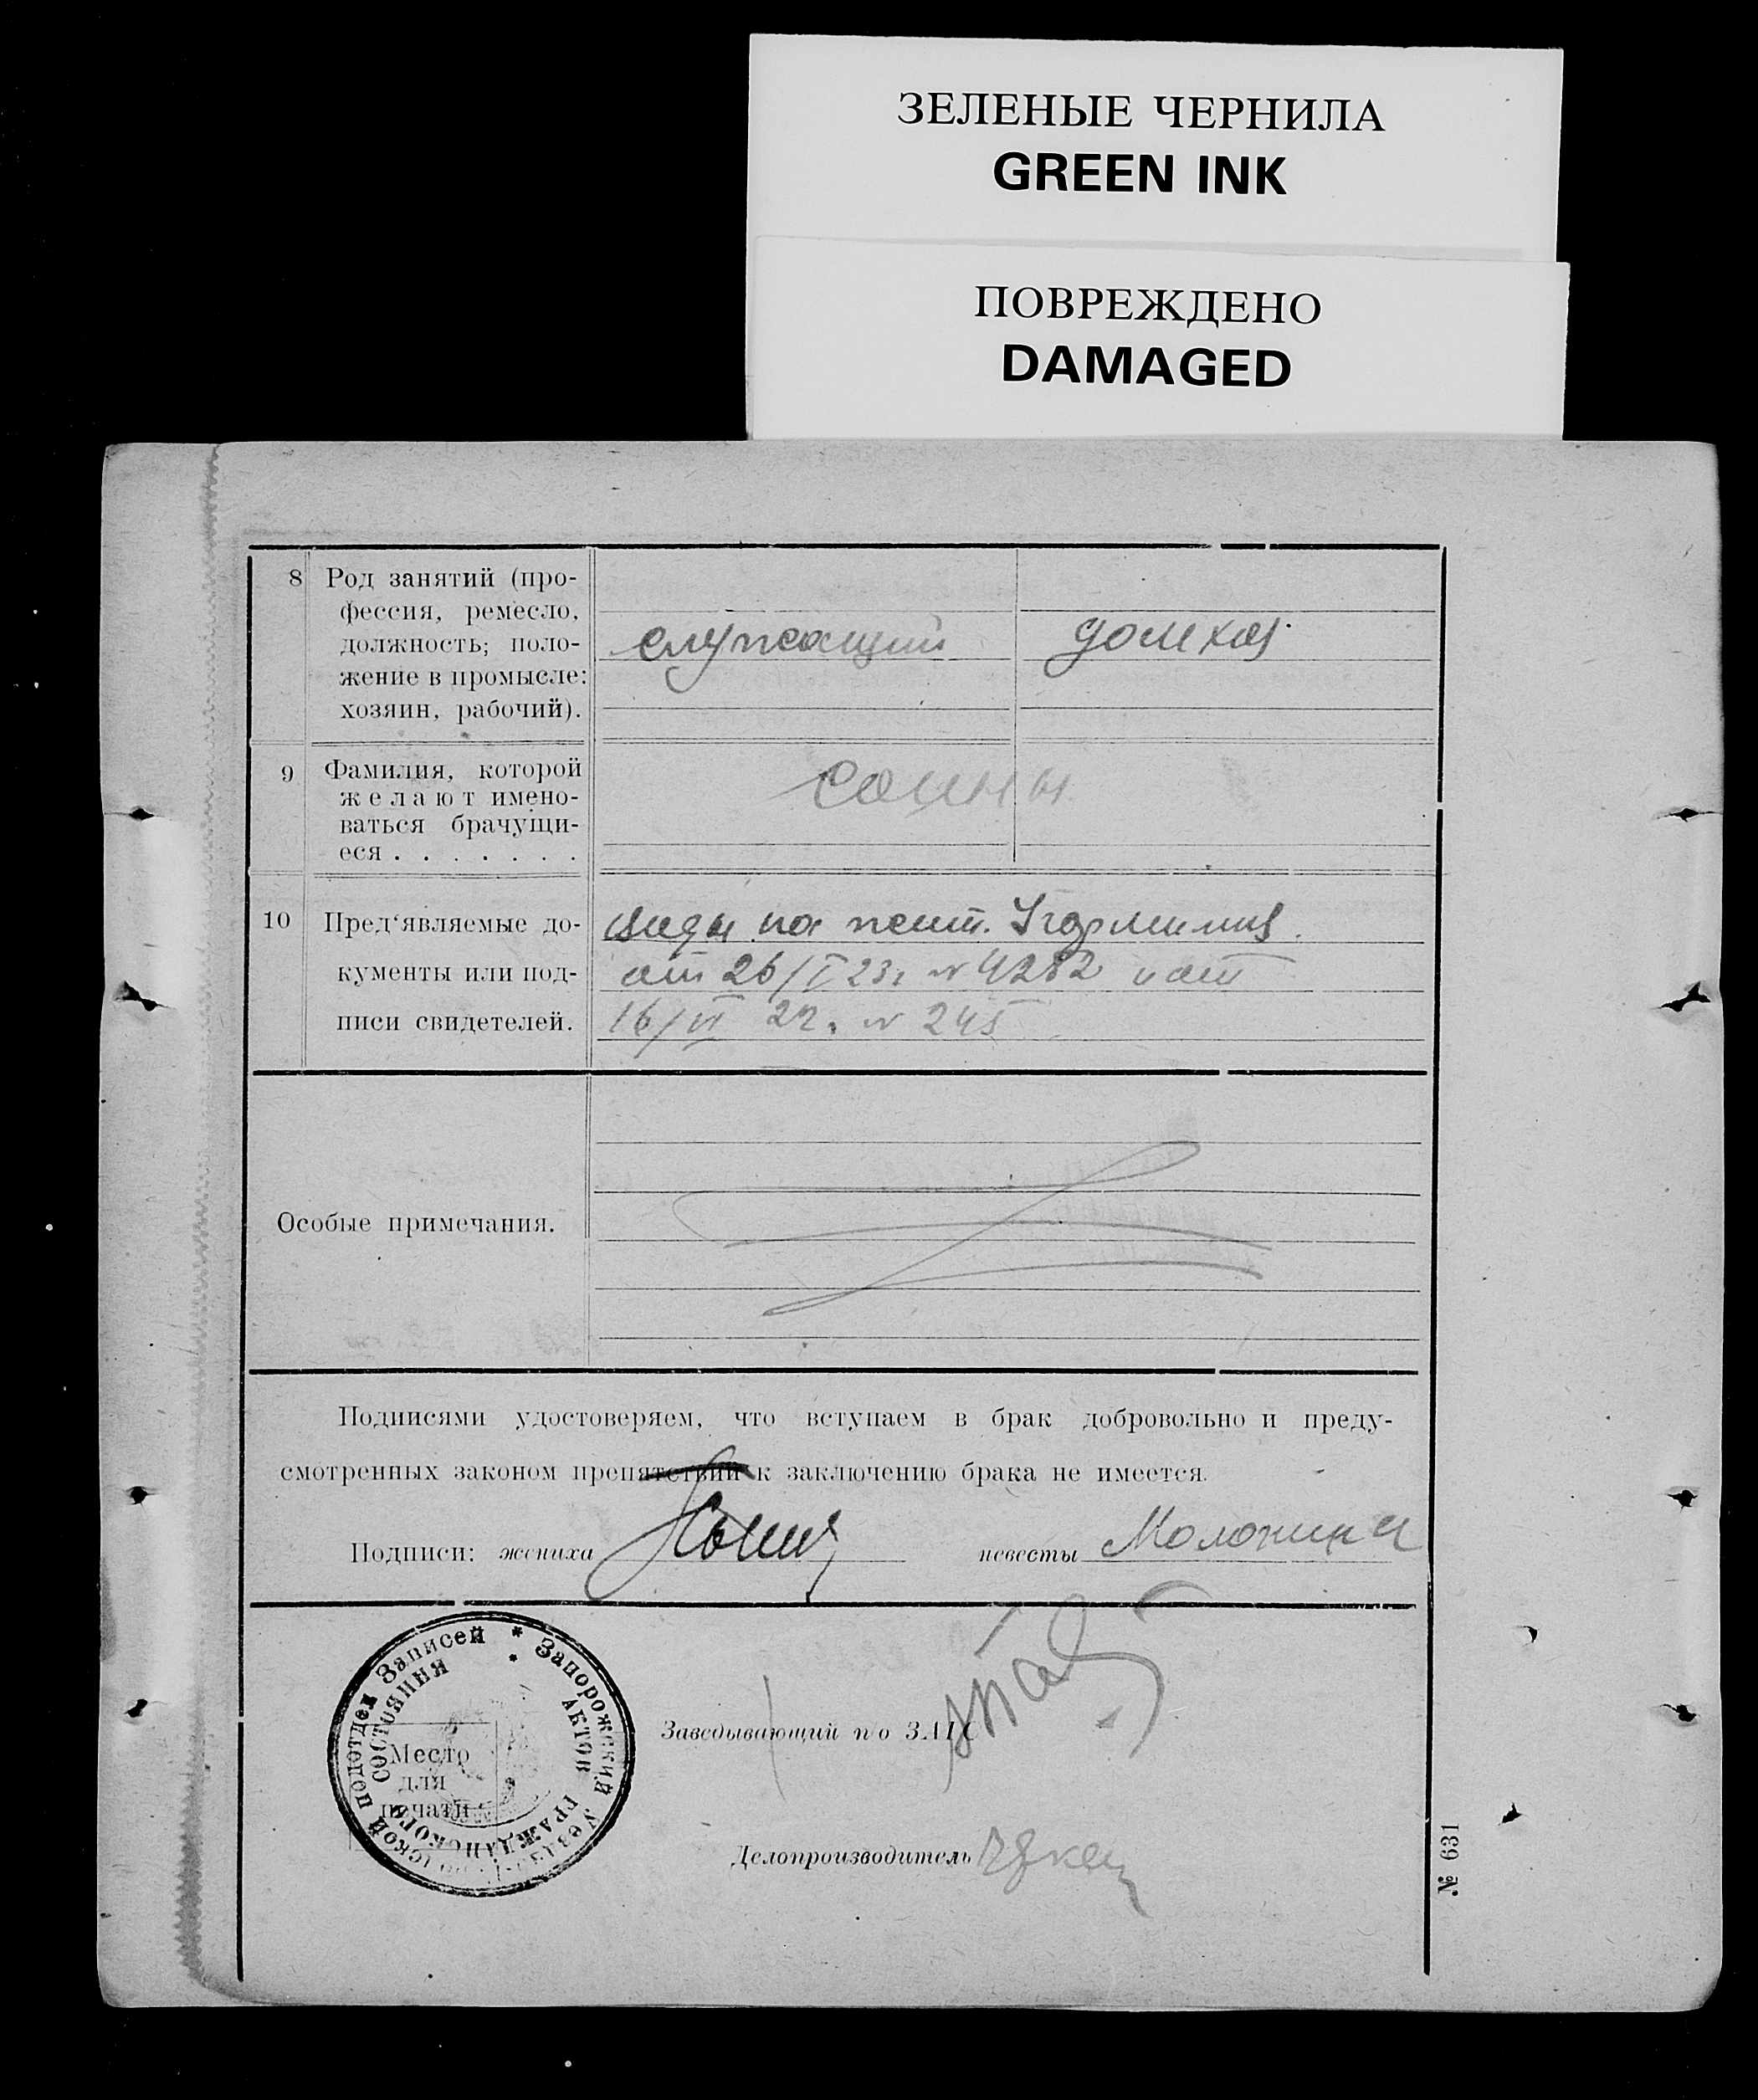 ЗЕЛЕНЫЕ ЧЕРНИЛА
GREEN INK
ПОВРЕЖДЕНО
DAMAGED
8 Род занятий (про-
фессия, ремесло,
должность; поло-
жение в промысле:
хозяин, рабочий).
служащий домхоз
9 Фамилия, которой
желают имено-
ваться брачущи-
еся . . . . . . .
10 Пред‘являемые до- виды на жит.
кументы или под- от 26/I 23г № 4282 и от
писи свидетелей. 16/VI 22г № 245
Особые примечания.
Подписями удостоверяем, что вступаем в брак добровольно и преду-
смотренных законом препятствий к заключению брака не имеется.
Подписи: жениха невесты
Запорожский Уездный подотдел Записей
АКТОВ ГРАЖДАНСКОГО СОСТОЯНИЯ
Место
для
печати
Заведывающий по ЗАГС
Делопроизводитель
№ 631